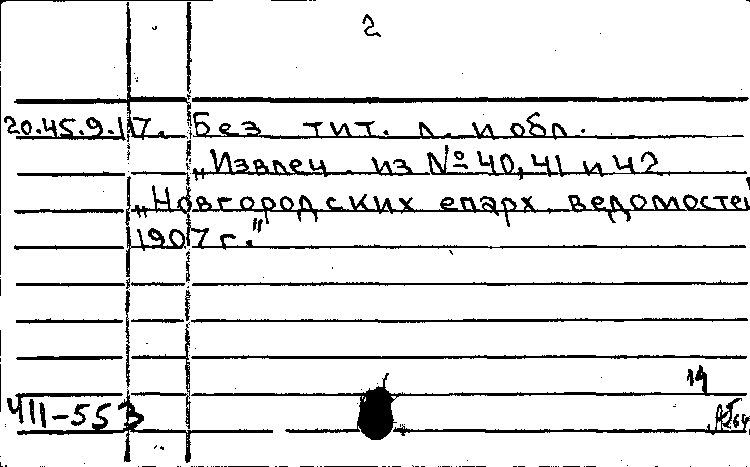 2
20.45.9.117. Без тит. л. и обл.
„Извлеч. из № 40, 41 и 42
„Новгородских епарх. ведомостей
1907 г."
14
411-553